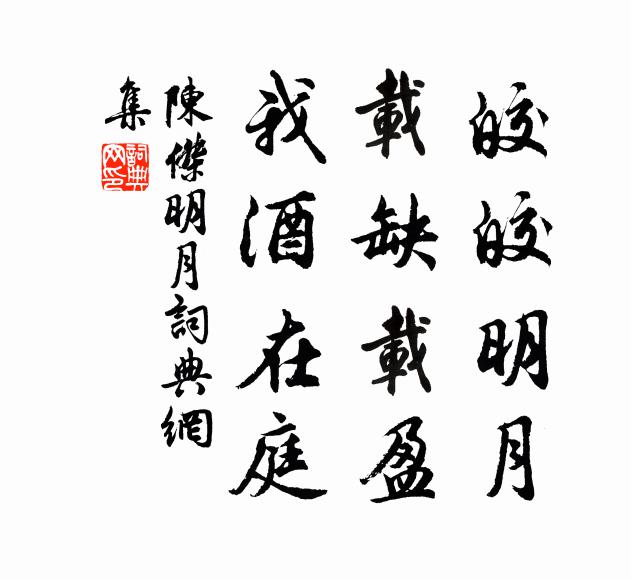 皎皎明月
載缺載盈
我酒在庭
陳傑明月詞典網
集
詞典網印